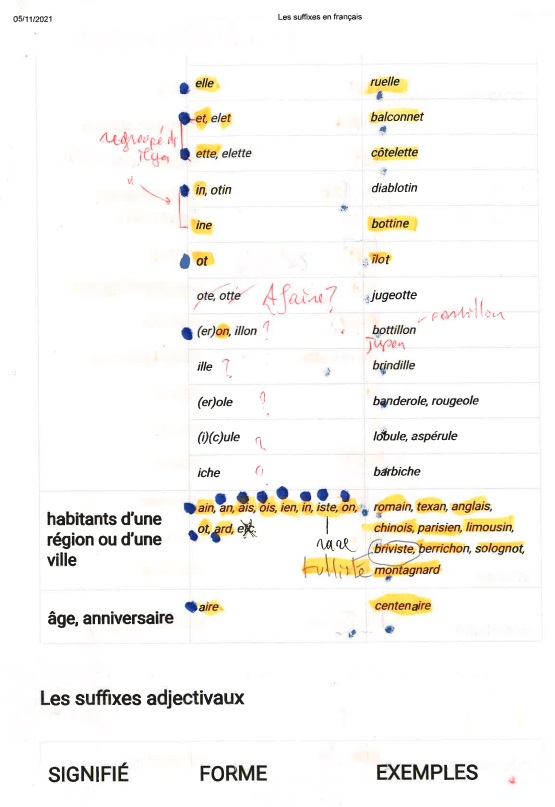 05/11/2021 Les suffixes en français
elle ruelle
et, elet balconnet
regroupé ds
ette, elette côtelette
in, otin diablotin
ine bottine
ot îlot
ote, otte A faire? jugeotte
(er)on, illon ? bottillon
Jupon
ille ? brindille
(er)ole ? banderole, rougeole
(i)(c)ule ? lobule, aspérule
iche ? barbiche
habitants d'une région ou d'une ville
ain, an, ais, ois, ien, in, iste, on, romain, texan, anglais,
ot, ard, etc. chinois, parisien, limousin,
rare briviste, berrichon, solognot,
tulliste montagnard
âge, anniversaire aire centenaire
Les suffixes adjectivaux
SIGNIFIÉ FORME EXEMPLES